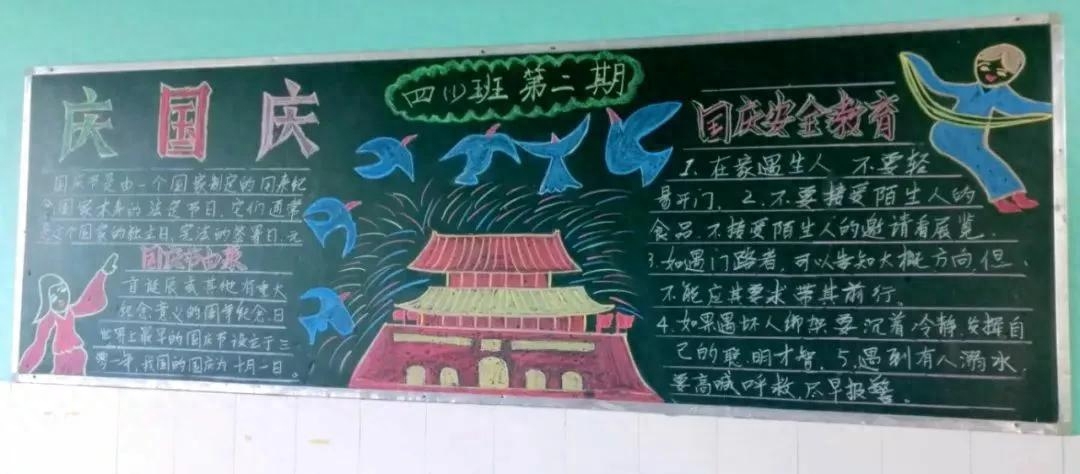 四(1)班第二期
庆国庆
国庆节是由一个国家制定的用来纪
念国家本身的法定节日,它们通常
是这个国家的独立日、宪法的签署日、元
国庆节由来
首诞辰或其他有重大
纪念意义的周年纪念日
世界上最早的国庆节设立于三
一年,我国的国庆为十月一日。
国庆安全教育
1.在家遇生人 不要轻
易开门, 2.不要接受陌生人的
食品,不接受陌生人的邀请看展览.
3.如遇门路者,可以告知大概方向,但、
不能应其要求带其前行。
4.如果遇坏人绑架要沉着冷静,发挥自
己的聪明才智、5.遇到有人溺水,
要高喊呼救,尽早报警。